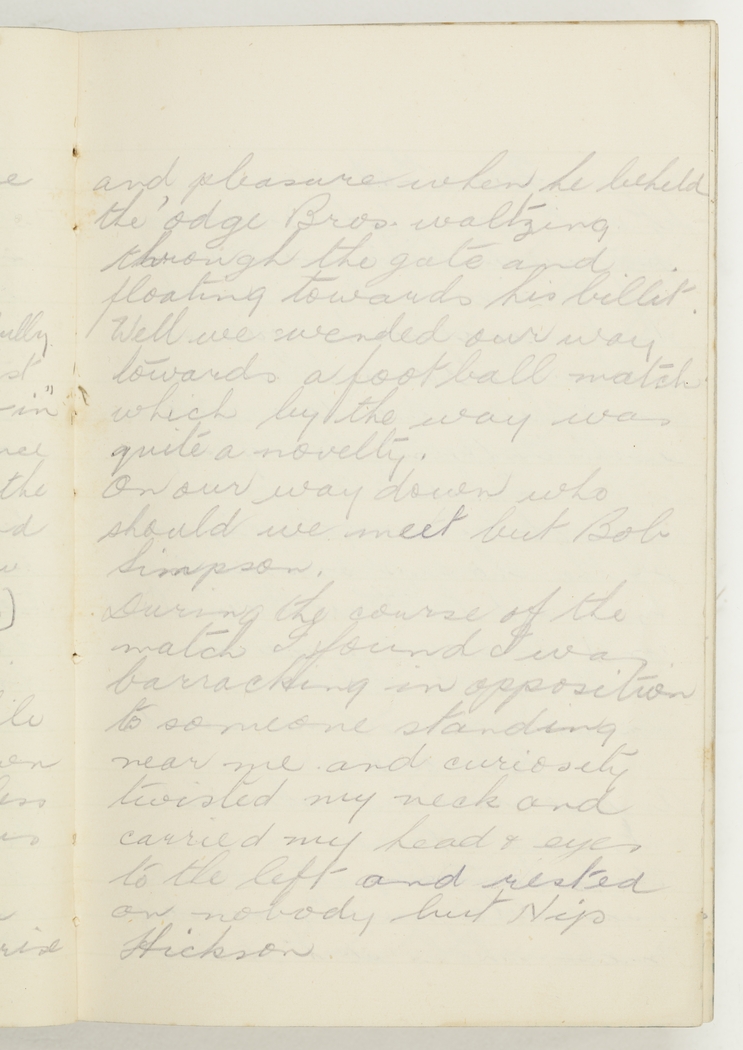 and pleasure when he beheld
the 'odge Bros. waltzing
through the gate and
floating towards his billit.
Well we wended our way
towards a foot ball match
which by the way was
quite a novelty.
On our way down who
should we meet but Bob
Simpson.
During the course of the
match I found I was
barracking in opposition
to someone standing
near me and curiosity
twisted my neck and
carried my head & eyes
to the left and rested
on nobody but Nip
Hickson.